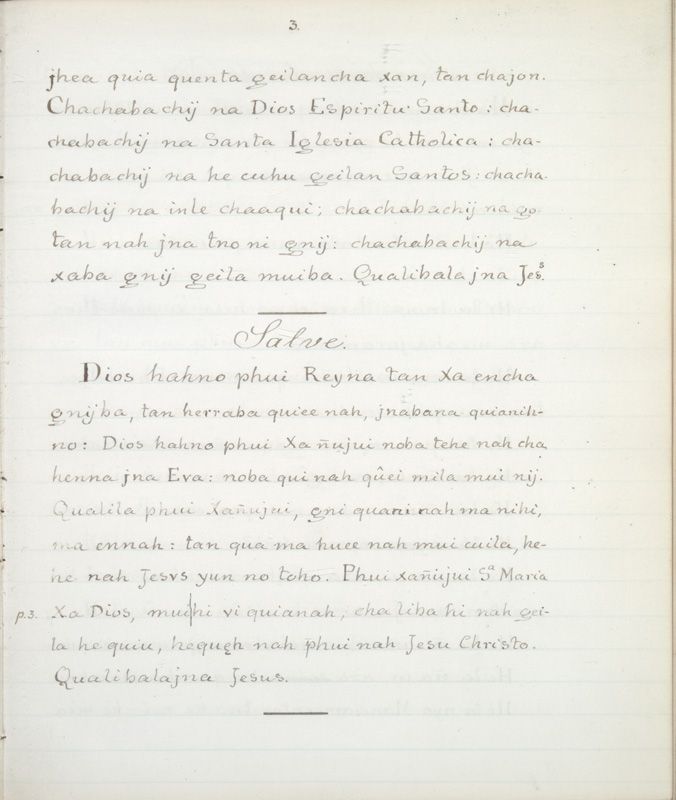 3.
jhea quia quenta geilancha xan, tan chajon.
Chachabachij na Dios Espiritu Santo: cha-
chabachij na Santa Iglesia Catholica: cha-
chabachij na he cuhu geilan Santos: chacha-
bachij na inle chaaqui; chachabachij na go-
tan nah jna tno ni gnij: chachabachij na
xaba gnij geila muiba. Qualibalajna Jes.s
Salve.
Dios hahno phui Reyna tan Xa encha
gnijba, tan herraba quiee nah, jnabana quianih-
no: Dios hahno phui Xañujui noba tehe nah cha
henna jna Eva: noba qui nah qûei mila mui nij.
Qualila phui Xañujui, gni quani nah ma nihi,
ma ennah: tan qua ma huee nah mui cuila, he-
he nah Jesvs yun no toho. Phui xañujui Sa Maria
p.3. Xa Dios, mui|hi vi quianah, cha liba hi nah gei-
la he quiu, hequęh nah phui nah Jesu Christo.
Qualibalajna Jesus.